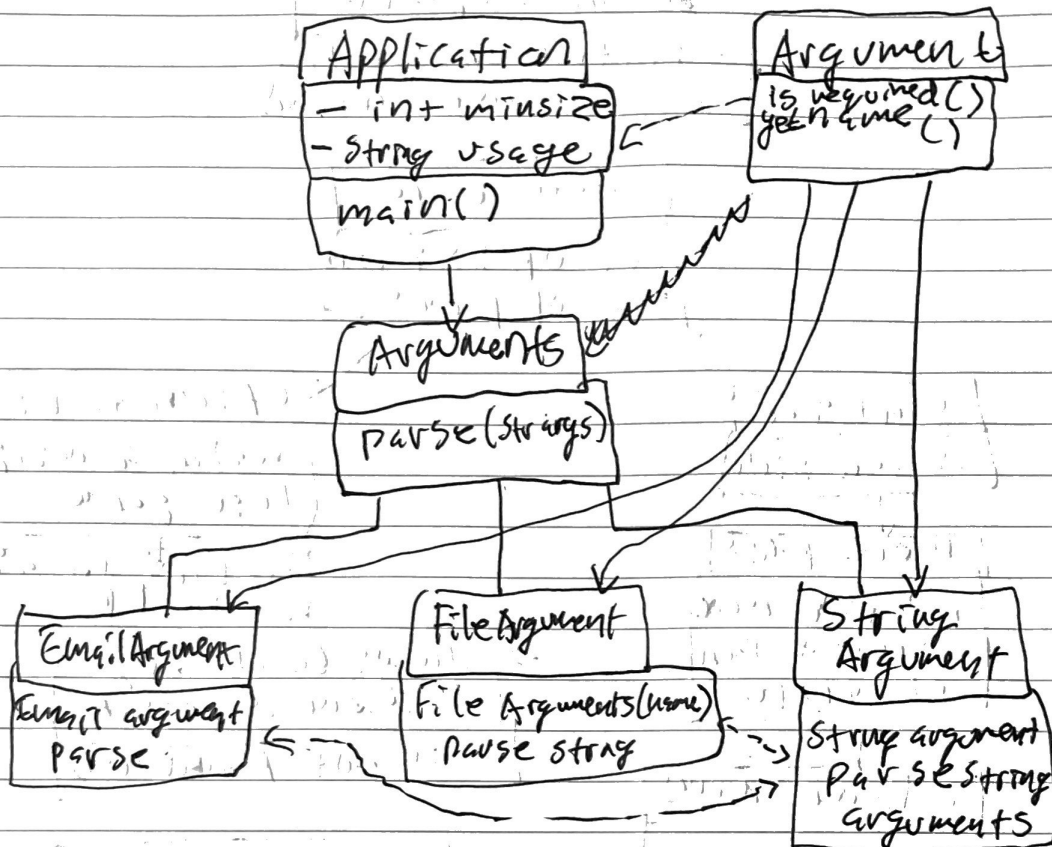 Application
- int minsize
- String usage
main()
Argument
is required()
getname
()
Arguments
parse(Strargs)
EmailArgument
Email argument
parse
FileArgument
File Arguments(name)
parse string
String
Argument
String argument
parse string
arguments